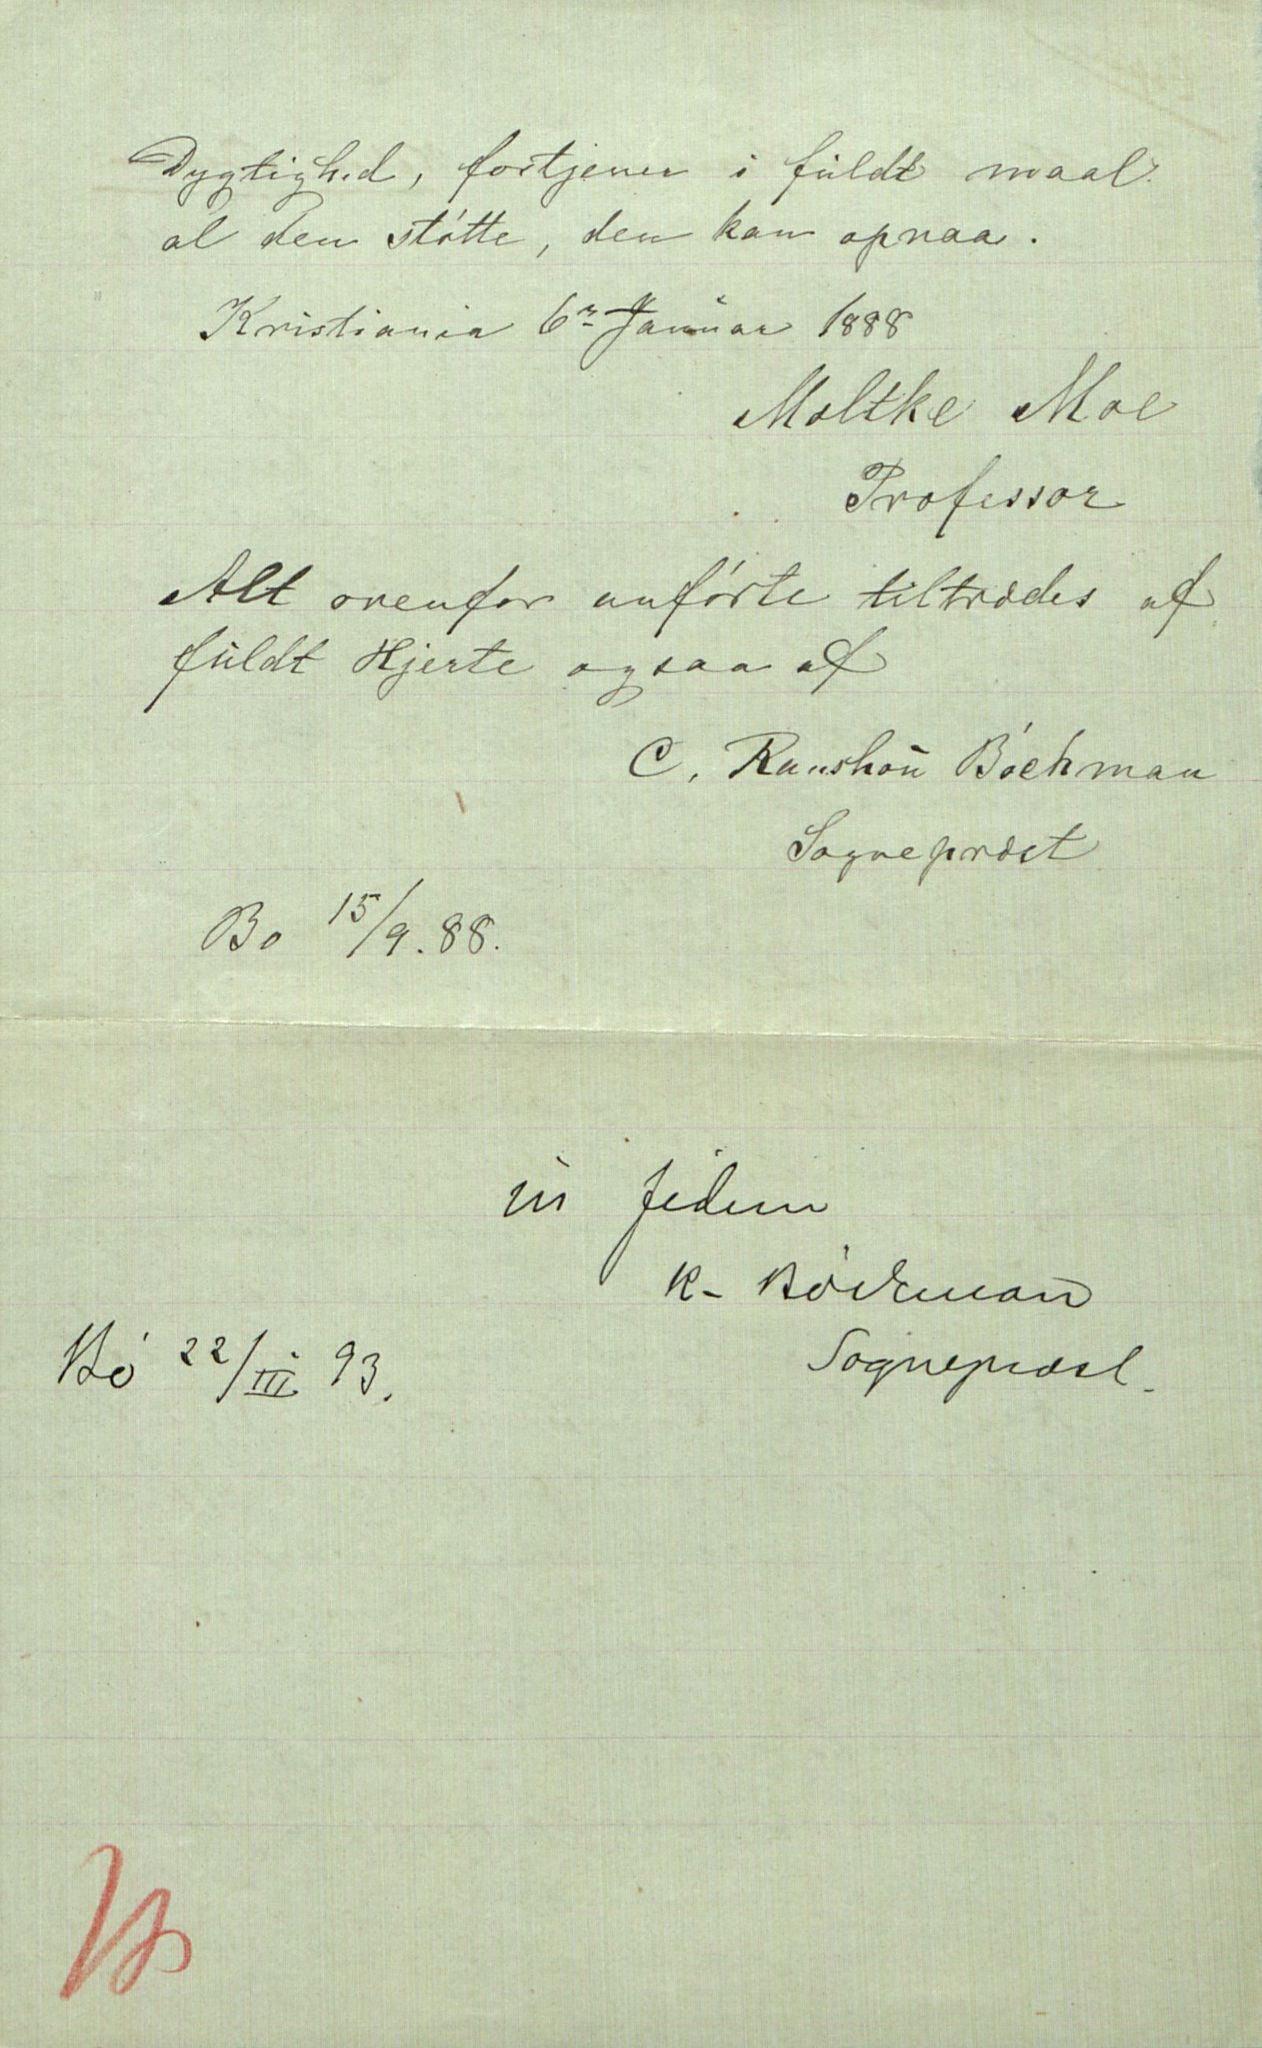 Dygtighed, fortjener i fuldt maal
al den støtte, den kan opnaa.
Kristiania 6r Januar 1888
Moltke Moe
Professor
Alt ovenfor anførte tiltrædes af
fuldt Hjerte ogsaa af
C. Böckman
Sognepræst
Bø 15/9. 88.
in fidem
K. Böckman
Bø 22/III 93.
Sognepræst.